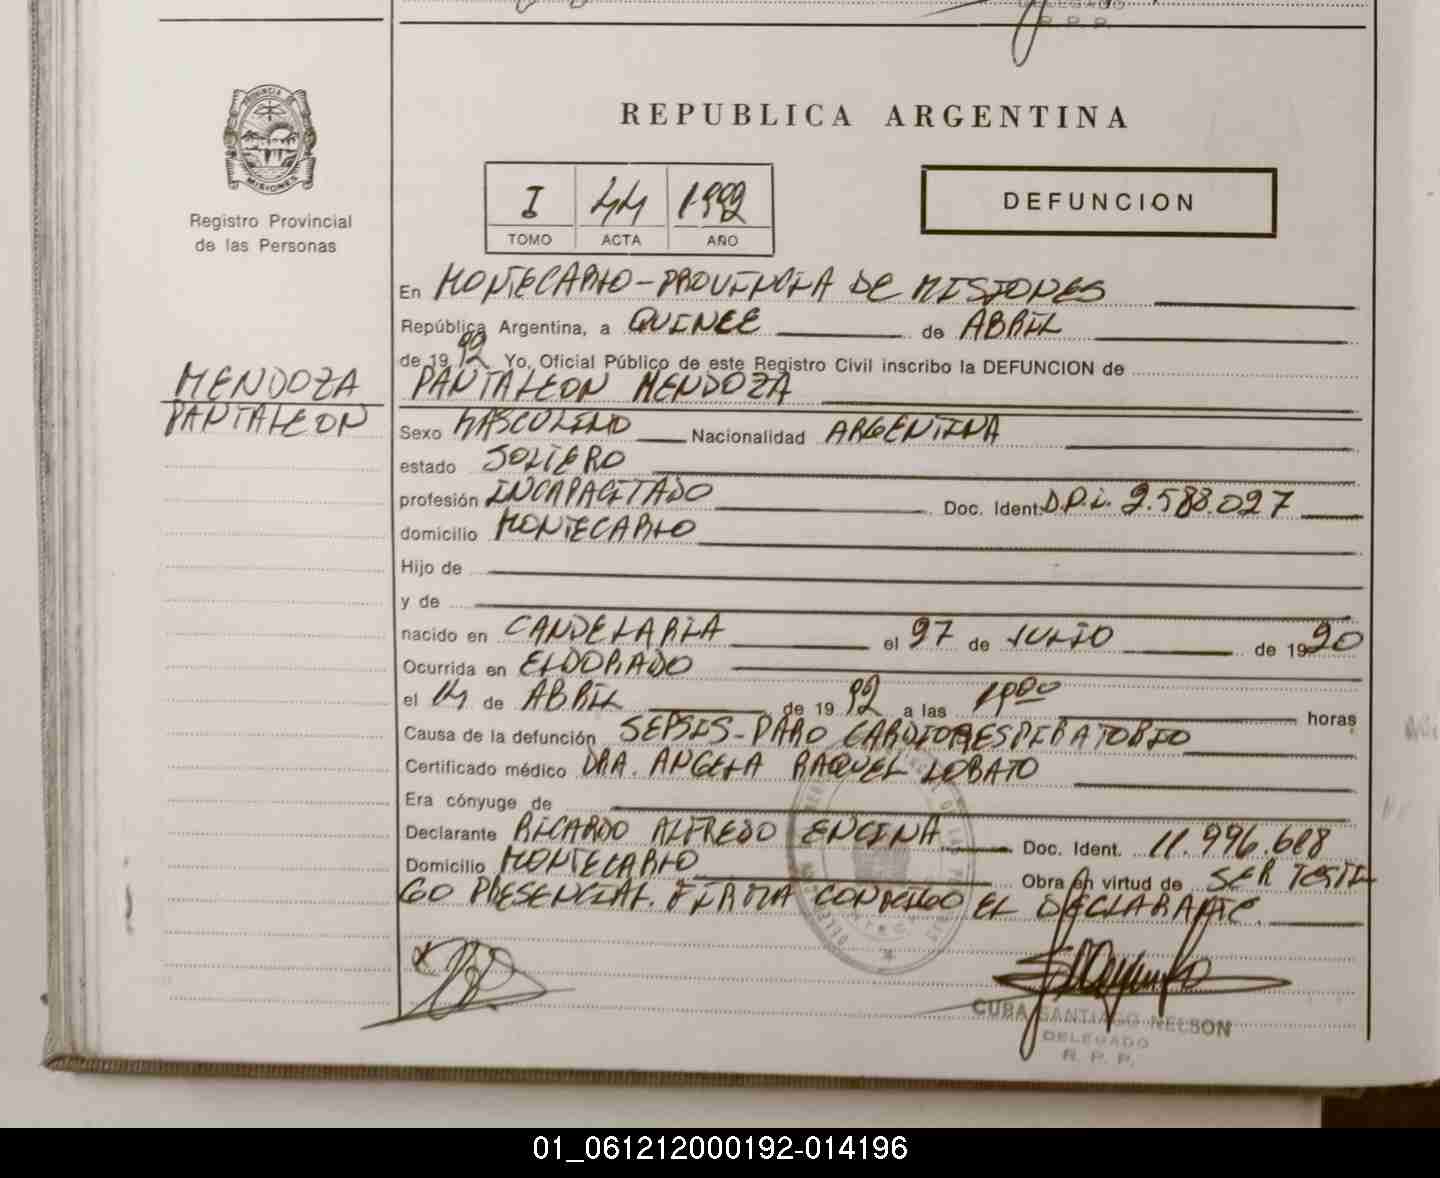 DELEGADO
R. P. P.
PROVINCIA DE
MISIONES
Registro Provincial
de las Personas
REPUBLICA ARGENTINA
I 44 1992
TOMO ACTA AÑO
DEFUNCION
En MONTECARLO-PROVINCIA DE MISIONES
República Argentina, a QUINCE de ABRIL
de 1992 Yo, Oficial Público de este Registro Civil inscribo la DEFUNCION de
MENDOZA
PANTALEON
PANTALEON MENDOZA
Sexo MASCULINO Nacionalidad ARGENTINA
estado SOLTERO
profesión INCAPACITADO Doc. Ident. D.N.I. 2.588.027
domicilio MONTECARLO
Hijo de
y de
nacido en CANDELARIA el 27 de JULIO de 1920
Ocurrida en ELDORADO
el 14 de ABRIL de 1992 a las 19°° horas
Causa de la defunción SEPSIS-PARO CARDIORESPIRATORIO
Certificado médico DRA. ANGELA RAQUEL LOBATO
Era cónyuge de
Declarante RICARDO ALFREDO ENCINA Doc. Ident. 11.996.688
Domicilio MONTECARLO Obra en virtud de SER TESTI
GO PRESENCIAL. FIRMA CONMIGO EL DECLARANTE.
CUBA SANTIAGO NELSON
DELEGADO
R. P. P.
01_061212000192-014196